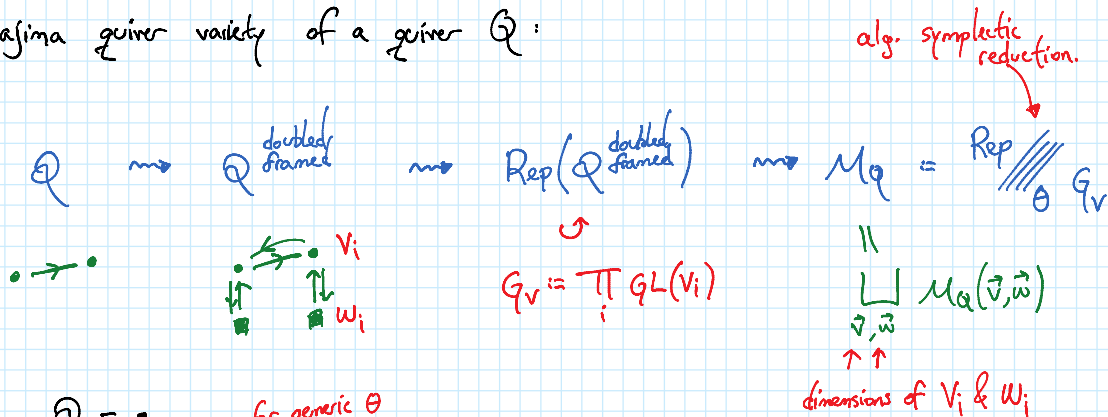 ajima quiver variety of a quiver Q :
alg. symplectic
reduction.
Q ⇝ Q^{doubled/framed} ⇝ Rep(Q^{doubled/framed}) ⇝ M_Q = Rep ////_θ G_v
V_i
W_i
G_v := ∏_i GL(V_i)
||
⊔_{\vec{v},\vec{w}} M_Q(\vec{v},\vec{w})
dimensions of V_i & W_i
for generic θ